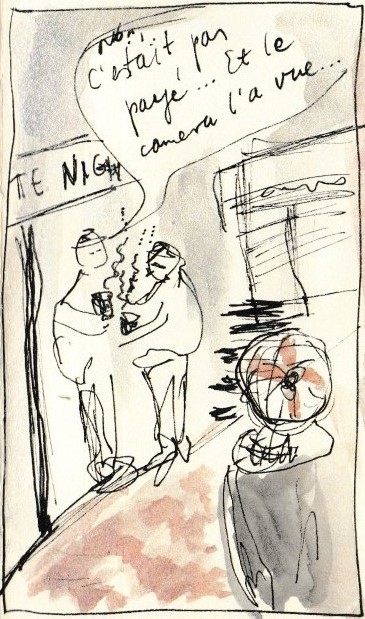 Non,
c'était pas
payé... Et le
camera l'a vue...
TE NIGH